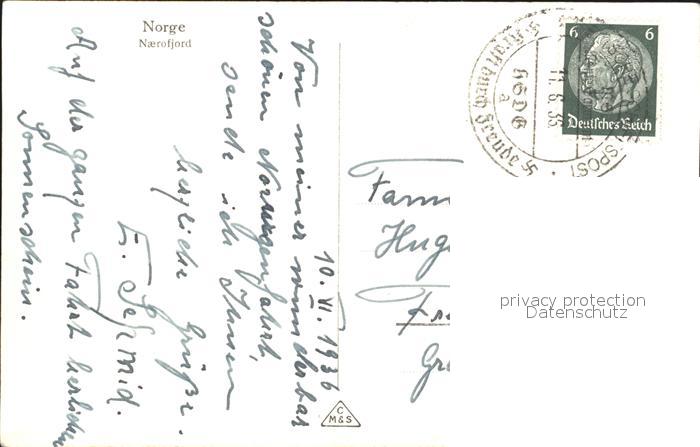 Norge
Nærofjord
10. VI. 1936
Von meiner wunderbar
schönen Norwegenfahrt,
sende ich Ihnen
herzliche Grüße.
E. Schmid.
Auf der ganzen Fahrt herrlichen
Sonnenschein.
6 6
Deutsches Reich
HSDG
a
11.6.36
Kraft durch Freude
Fam
Hug
Fr
Gr
C
M&S
privacy protection
Datenschutz